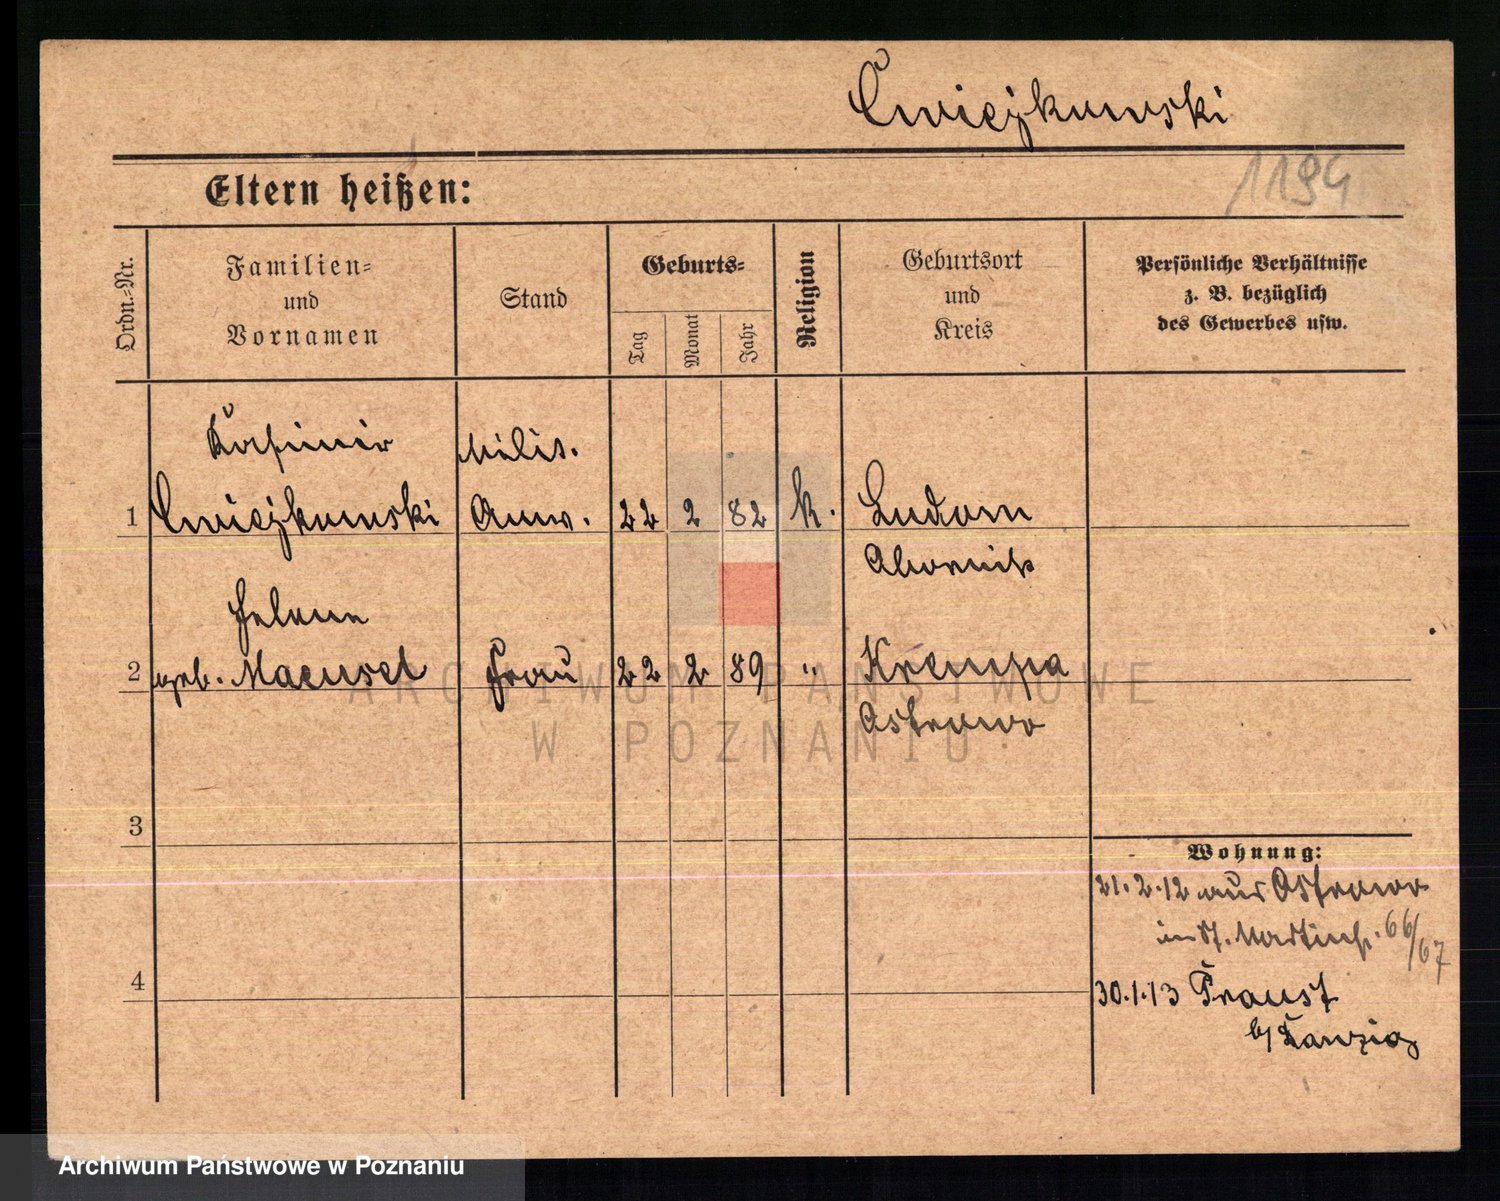 Cwiejkowski
1194
Eltern heißen:
Ordn.-Nr.
Familien-
und
Vornamen
Stand
Geburts-
Tag
Monat
Jahr
Religion
Geburtsort
und
Kreis
Persönliche Verhältnisse
z. B. bezüglich
des Gewerbes usw.
Kasimir
Milit.
1 Cwiejkowski Anw. 22 2 82 k. Ludom
Obornik
Helene
2 geb. Maeusel Frau 22 2 89 " Krempa
Ostrowo
3
Wohnung:
21.2.12 aus Ostrowo
in St. Martinstr. 66/67
4
30.1.13 Praust
b/ Danzig
ARCHIWUM PAŃSTWOWE
W POZNANIU
Archiwum Państwowe w Poznaniu